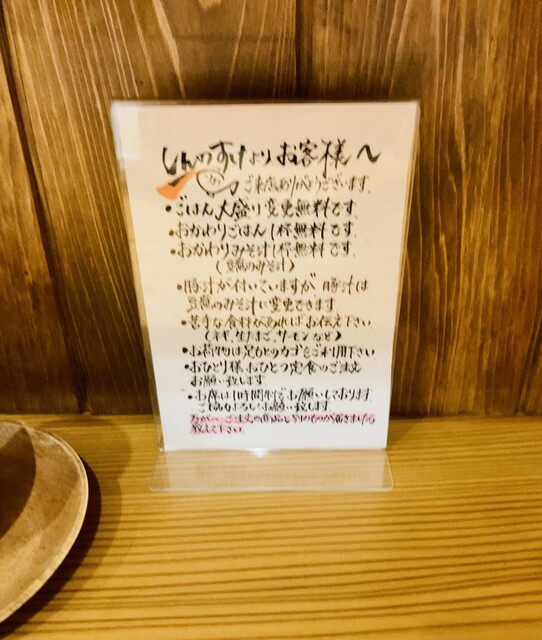 しんのすけよりお客様へ
ご来店ありがとうございます。
・ごはん大盛り変更無料です。
・おかわりごはん1杯無料です。
・おかわりみそ汁1杯無料です。
(豆腐のみそ汁)
・豚汁が付いていますが 豚汁は
豆腐のみそ汁に変更できます
・苦手な食材があればお伝え下さい
生たまご、サーモンなど)
・お荷物は足もとのカゴをご利用下さい
・おひとり様おひとつ定食のご注文
お願い致します
・お席は1時間半でお願いしております
ご協力よろしくお願い致します
万が一、ご注文の商品と
教えて下さい。